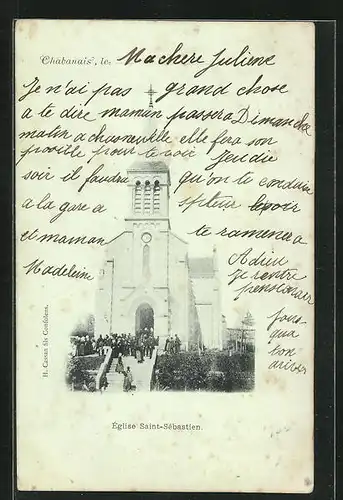 Chabanais, le
Machere Juliene
Je n'ai pas grand chose
a te dire maman passera Dimanche
matin a chasneuille elle fera son
posible pour te voir Jeudie
soir il faudra qu'on te conduise
a la gare a septeur le voir
et maman te ramenera
Madeleine
Adieu
je rentre
pensionner
jous-
qua
ton
arivee
H. Cassan fils Confolens.
Église Saint-Sébastien.